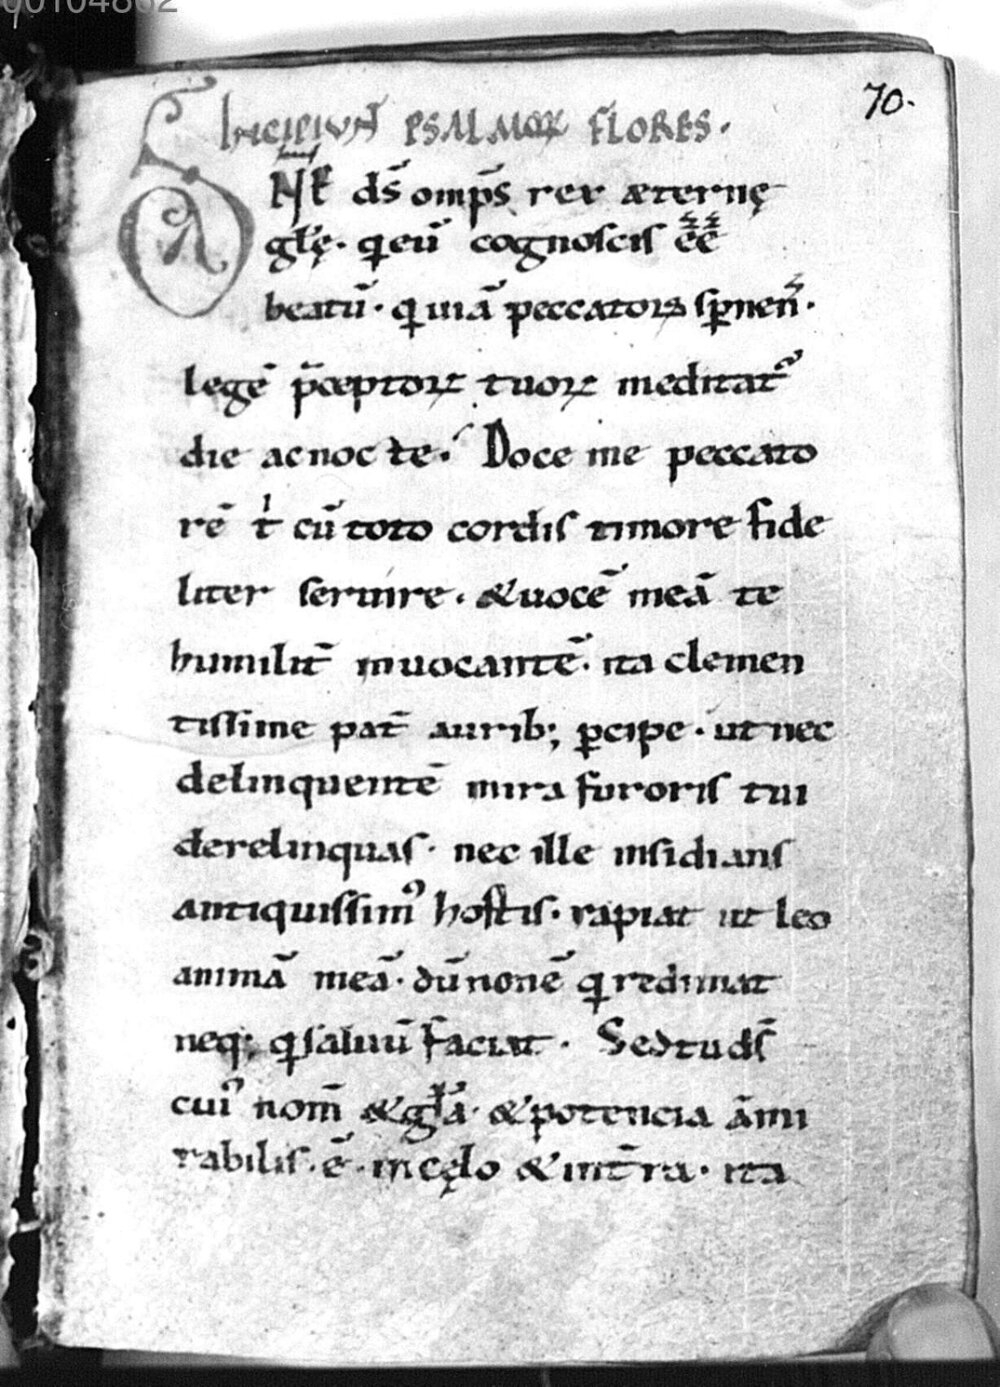 00104862
70.
INCIPIUNT PSALMOꝜ FLORES.
DNE ds̄ omp̄s rex æternę
gl̄ę. q eū cognoscis ēē
beatū. q uiā peccatorꝫ sꝑnen̄.
legē p̄ceptoꝝ tuoꝝ meditat᷒
die ac nocte. Doce me peccato
rē t' cū toto cordis timore fide
liter seruire. & uocē meā te
humilit̄ inuocantē. ita clemen
tissime pat̄ aurib; ꝑcipe. ut nec
delinquentē in ira furoris tui
derelinquas. nec ille insidians
antiquissim᷒ hostis. rapiat ut leo
animā meā. dū non ē q redimat
neq; q saluū faciat. Sed tu ds̄
cui᷒ nom̄ & gl̄a. & potencia āmi
rabilis. ē. in cęlo & in t̄ra. ita